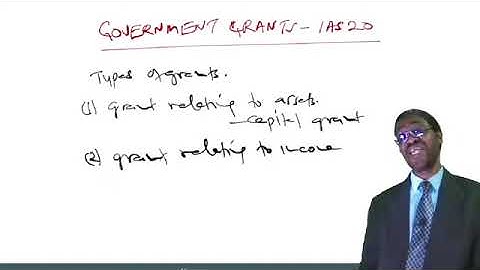 GOVERNMENT GRANTS - IAS 20
Types of grants.
(1) grant relating to assets.
- capital grant
(2) grant relating to income